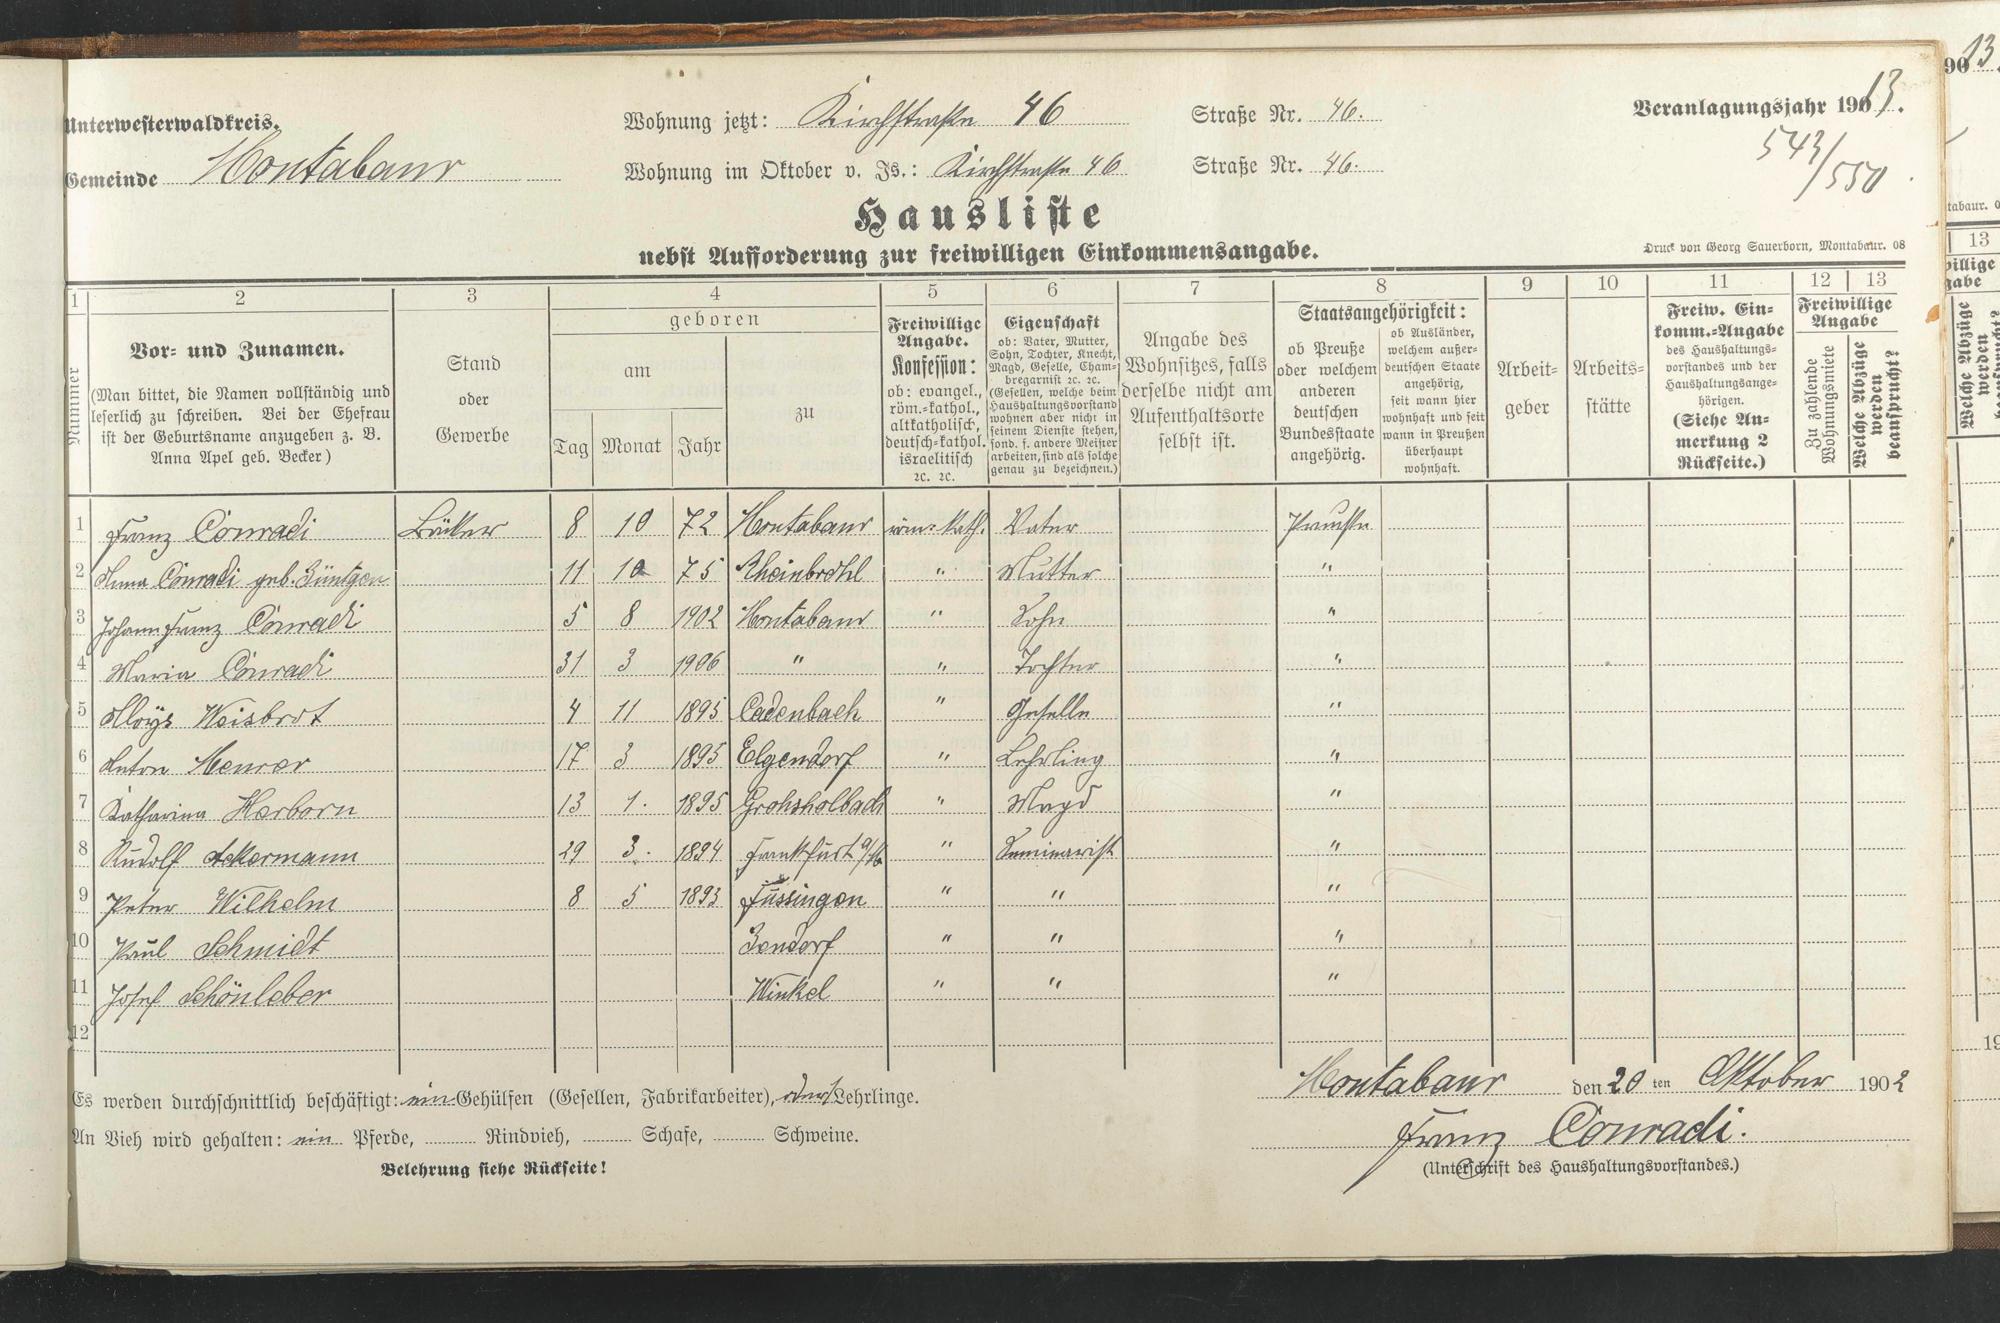 Unterwesterwaldkreis.
Gemeinde Montabaur
Wohnung jetzt: Kirchstraße 46 Straße Nr. 46.
Wohnung im Oktober v. Js.: Kirchstraße 46 Straße Nr. 46.
Veranlagungsjahr 1913.
543/550
Hausliste
nebst Aufforderung zur freiwilligen Einkommensangabe.
Druck von Georg Sauerborn, Montabaur. 08
1 2 3 4 5 6 7 8 9 10 11 12 13
Nummer
Vor- und Zunamen.
(Man bittet, die Namen vollständig und
leserlich zu schreiben. Bei der Ehefrau
ist der Geburtsname anzugeben z. B.
Anna Apel geb. Becker)
Stand
oder
Gewerbe
geboren
am
Tag Monat Jahr
zu
Freiwillige
Angabe.
Konfession:
ob: evangel.,
röm.-kathol.,
altkatholisch,
deutsch-kathol.
israelitisch
ꝛc. ꝛc.
Eigenschaft
ob: Vater, Mutter,
Sohn, Tochter, Knecht,
Magd, Geselle, Cham-
bregarnist ꝛc. ꝛc.
(Gesellen, welche beim
Haushaltungsvorstand
wohnen aber nicht in
seinem Dienste stehen,
sond. f. andere Meister
arbeiten, sind als solche
genau zu bezeichnen.)
Angabe des
Wohnsitzes, falls
derselbe nicht am
Aufenthaltsorte
selbst ist.
Staatsangehörigkeit:
ob Preuße
oder welchem
anderen
deutschen
Bundesstaate
angehörig.
ob Ausländer,
welchem außer-
deutschen Staate
angehörig,
seit wann hier
wohnhaft und seit
wann in Preußen
überhaupt
wohnhaft.
Arbeit-
geber
Arbeits-
stätte
Freiw. Ein-
komm.-Angabe
des Haushaltungs-
vorstandes und der
Haushaltungsange-
hörigen.
(Siehe An-
merkung 2
Rückseite.)
Freiwillige
Angabe
Zu zahlende
Wohnungsmiete
Welche Abzüge
werden
beansprucht?
1 Franz Conradi Bäcker 8 10 72 Montabaur röm=kath. Vater Preuße
2 Anna Conradi geb. Büntgen 11 10 75 Rheinbrohl " Mutter "
3 Johann Franz Conradi 5 8 1902 Montabaur " Sohn "
4 Maria Conradi 31 3 1906 " " Tochter "
5 Aloys Weisbrot 4 11 1895 Cadenbach " Geselle "
6 Anton Meurer 17 3 1895 Elgendorf " Lehrling "
7 Katharina Herborn 13 1. 1895 Grohsholbach " Magd "
8 Rudolf Ackermann 29 3. 1894 Frankfurt a/M " Seminarist "
9 Peter Wilhelm 8 5 1893 Füssingen " " "
10 Paul Schmidt " " "
11 Josef Schönleber Winkel " " "
12
Es werden durchschnittlich beschäftigt: ein Gehülfen (Gesellen, Fabrikarbeiter), Lehrlinge.
An Vieh wird gehalten: ein Pferde, Rindvieh, Schafe, Schweine.
Belehrung siehe Rückseite!
Montabaur den 20 ten Oktober 1902
Franz Conradi.
(Unterschrift des Haushaltungsvorstandes.)